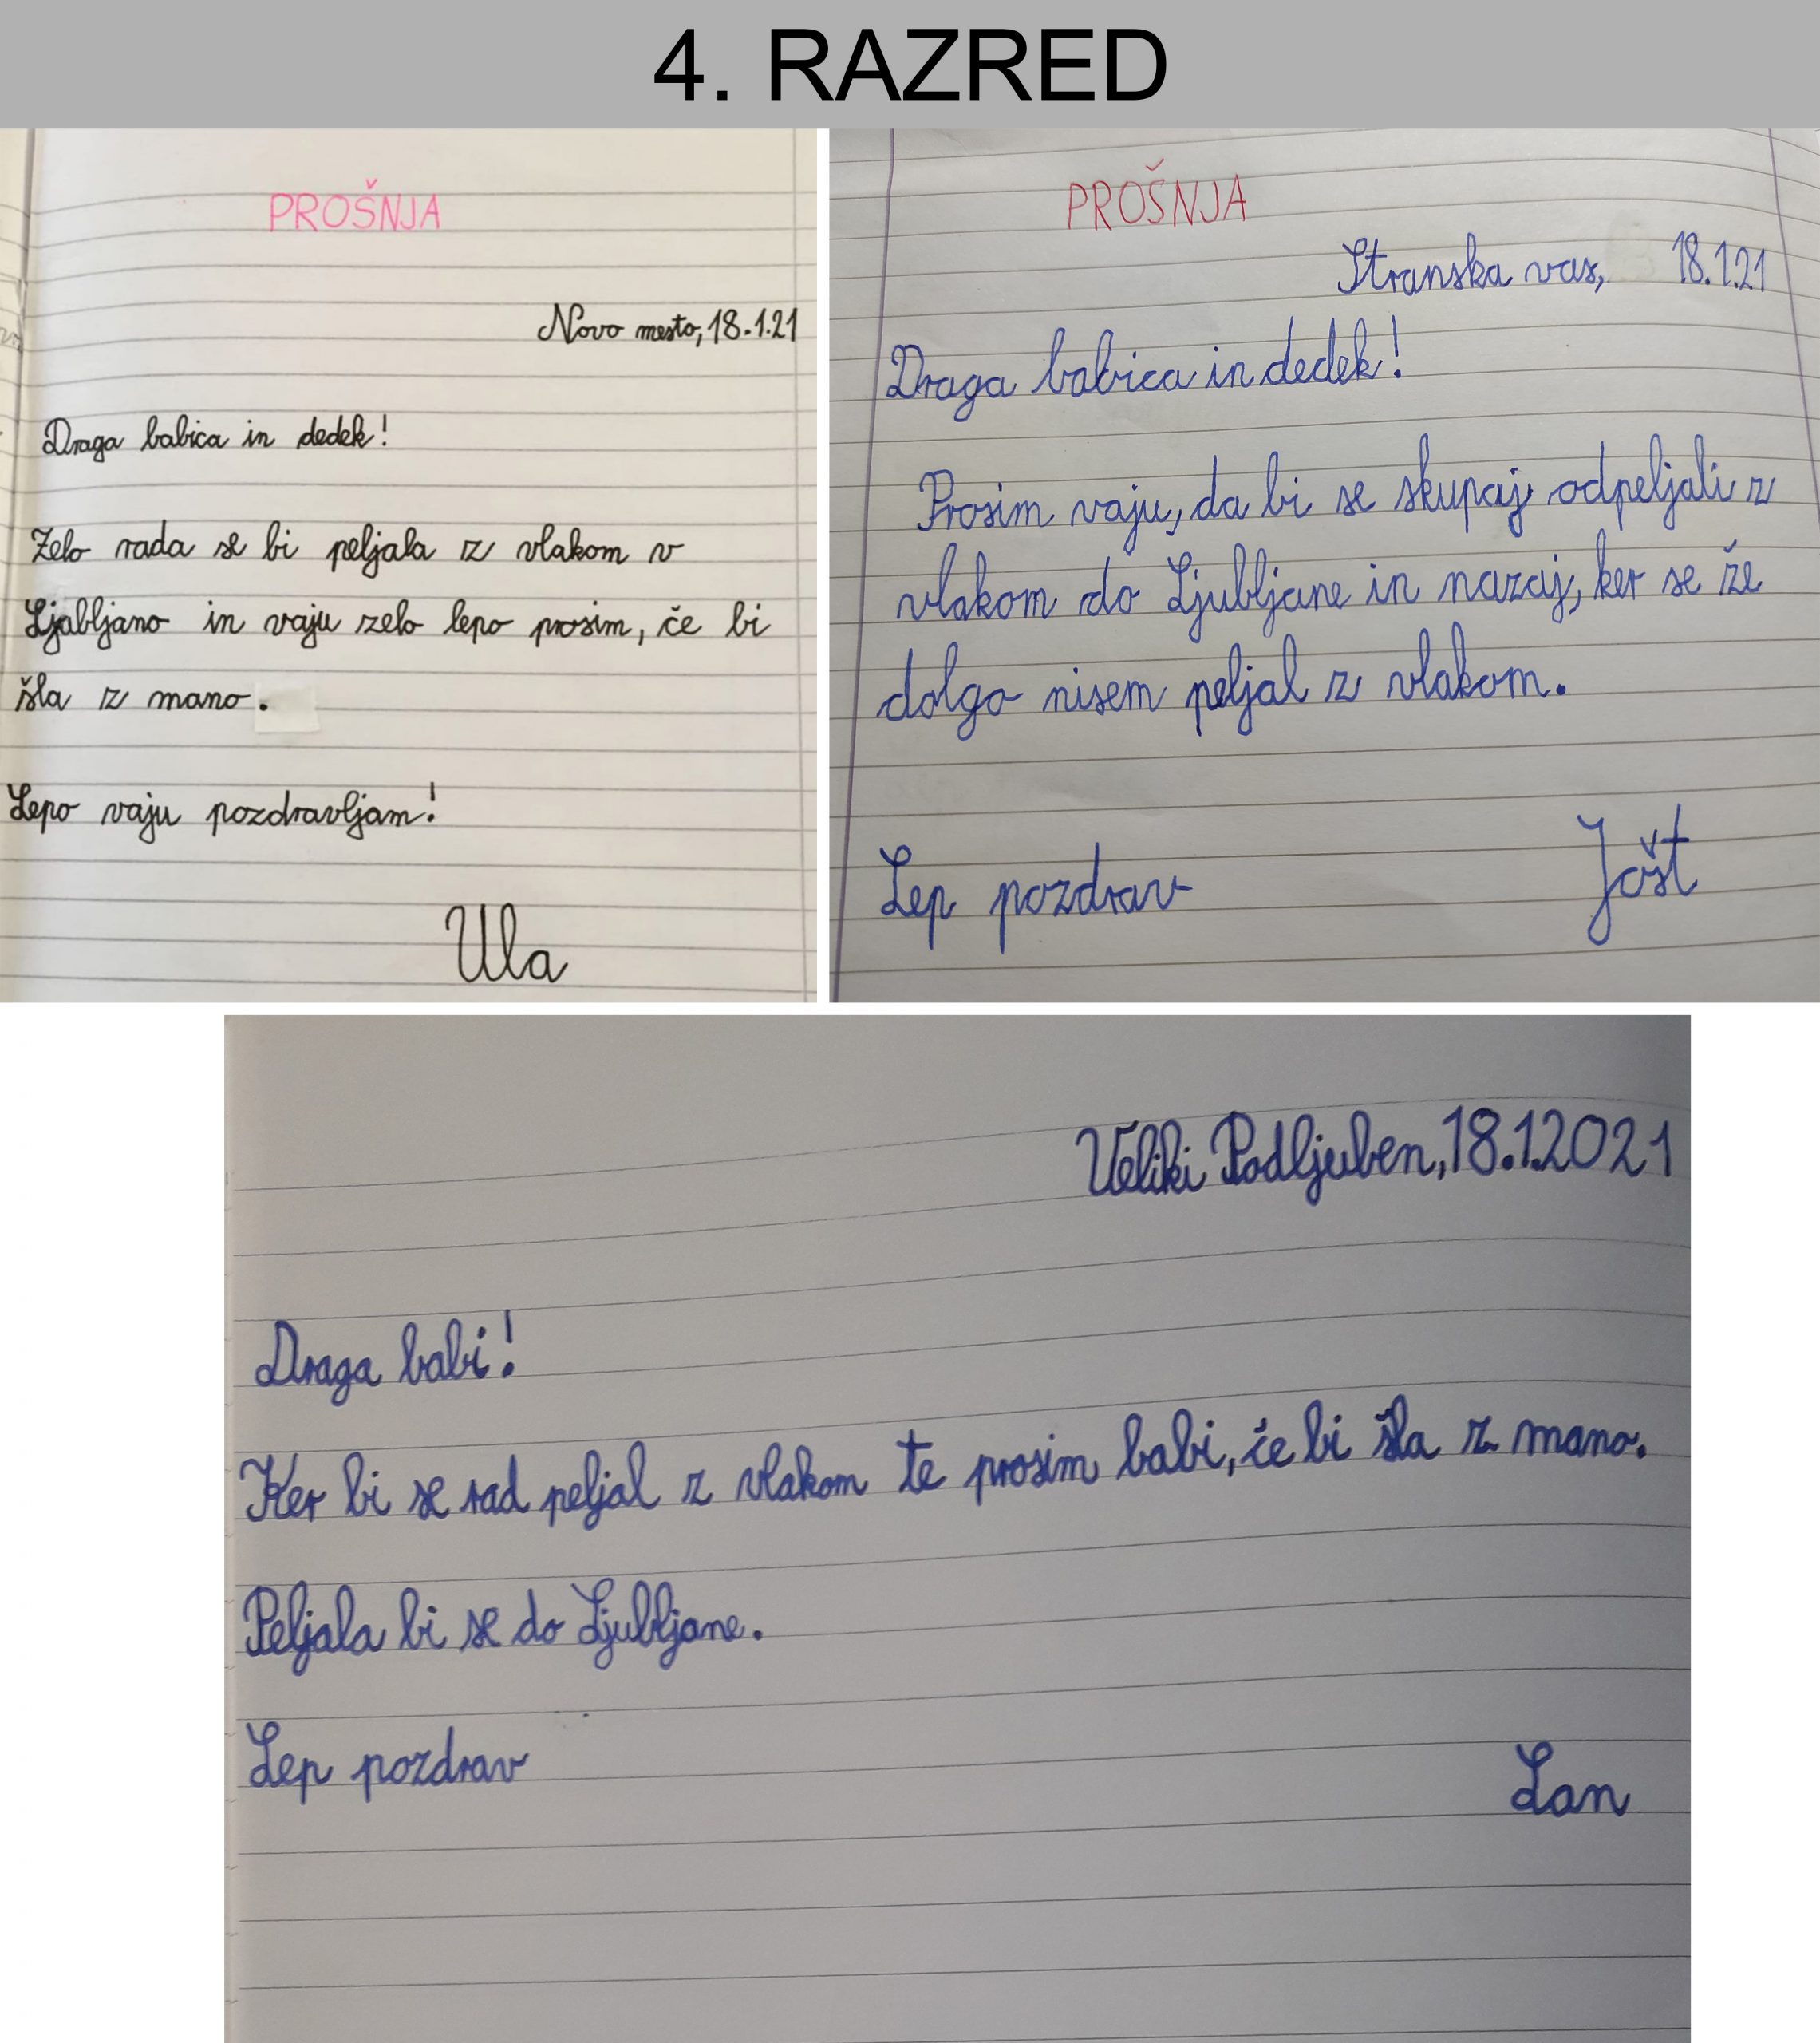 4. RAZRED
PROŠNJA
Novo mesto, 18.1.21
Draga babica in dedek!
Zelo rada se bi peljala z vlakom v
Ljabljano in vaju zelo lepo prosim, če bi
šla z mano.
Lepo vaju pozdravljam!
Ula
PROŠNJA
Stranska vas, 18.1.21
Draga babica in dedek!
Prosim vaju, da bi se skupaj odpeljali z
vlakom do Ljubljane in nazaj, ker se že
dolgo nisem peljal z vlakom.
Lep pozdrav Jošt
Veliki Podljuben, 18.1.2021
Draga babi!
Ker bi se rad peljal z vlakom te prosim babi, če bi šla z mano.
Peljala bi se do Ljubljane.
Lep pozdrav
Lan